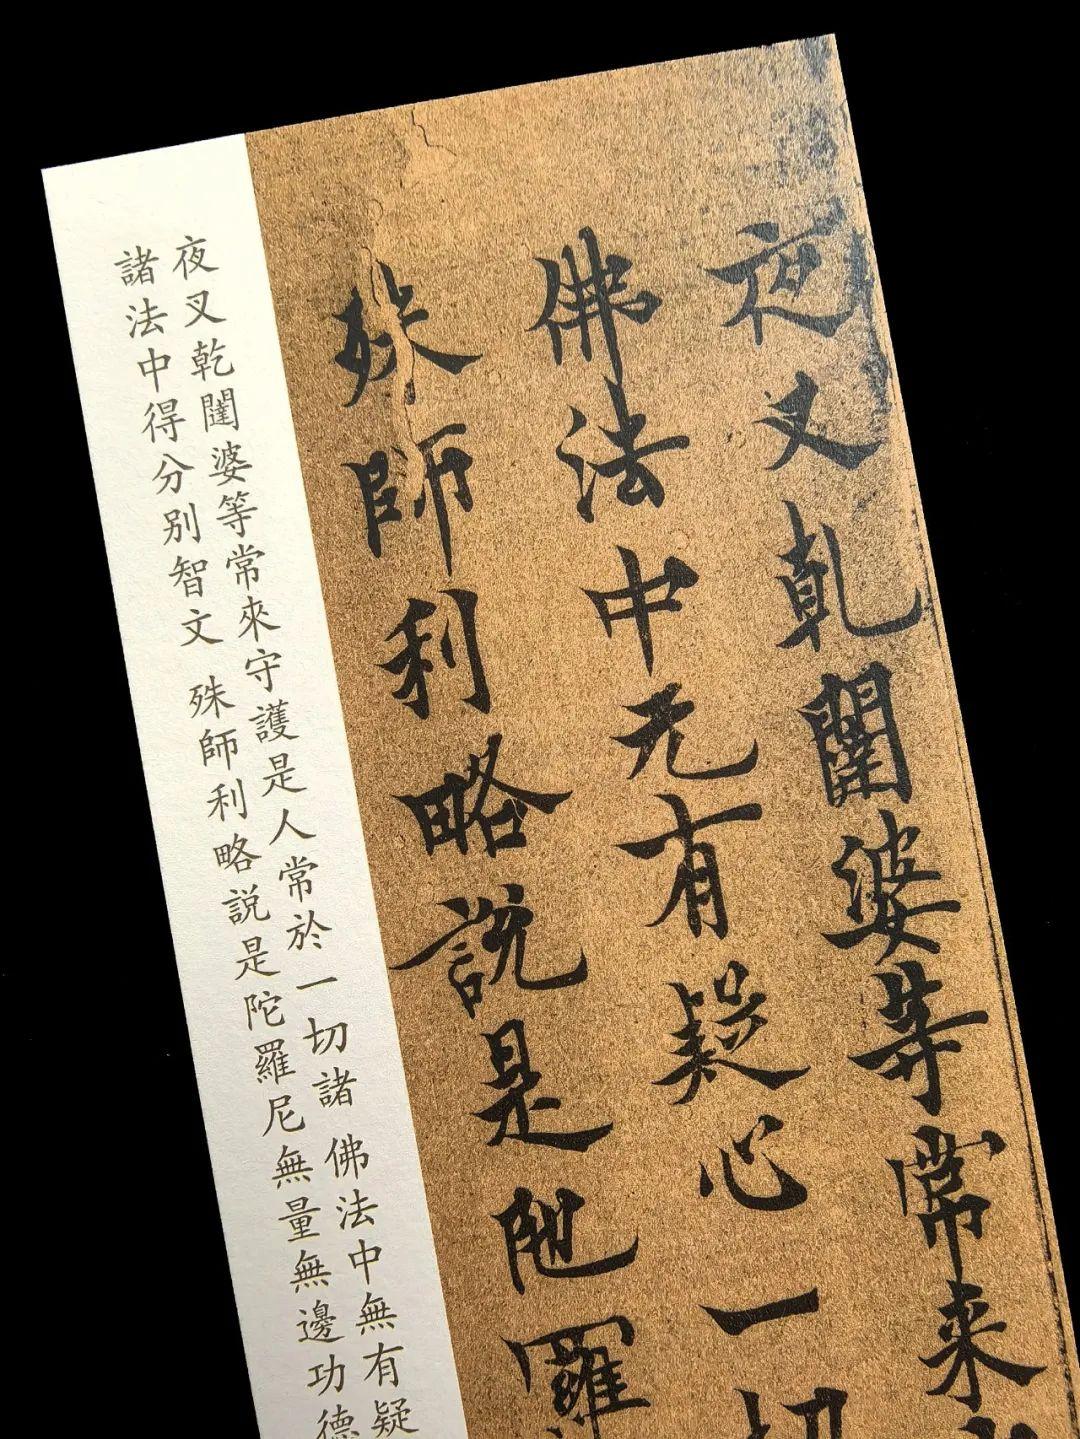 夜叉乹闥婆等常来
佛法中无有疑心一切
殊師利略說是陁羅
夜叉乾闥婆等常來守護是人常於一切諸 佛法中無有疑
諸法中得分别智文 殊師利略説是陀羅尼無量無邊功德